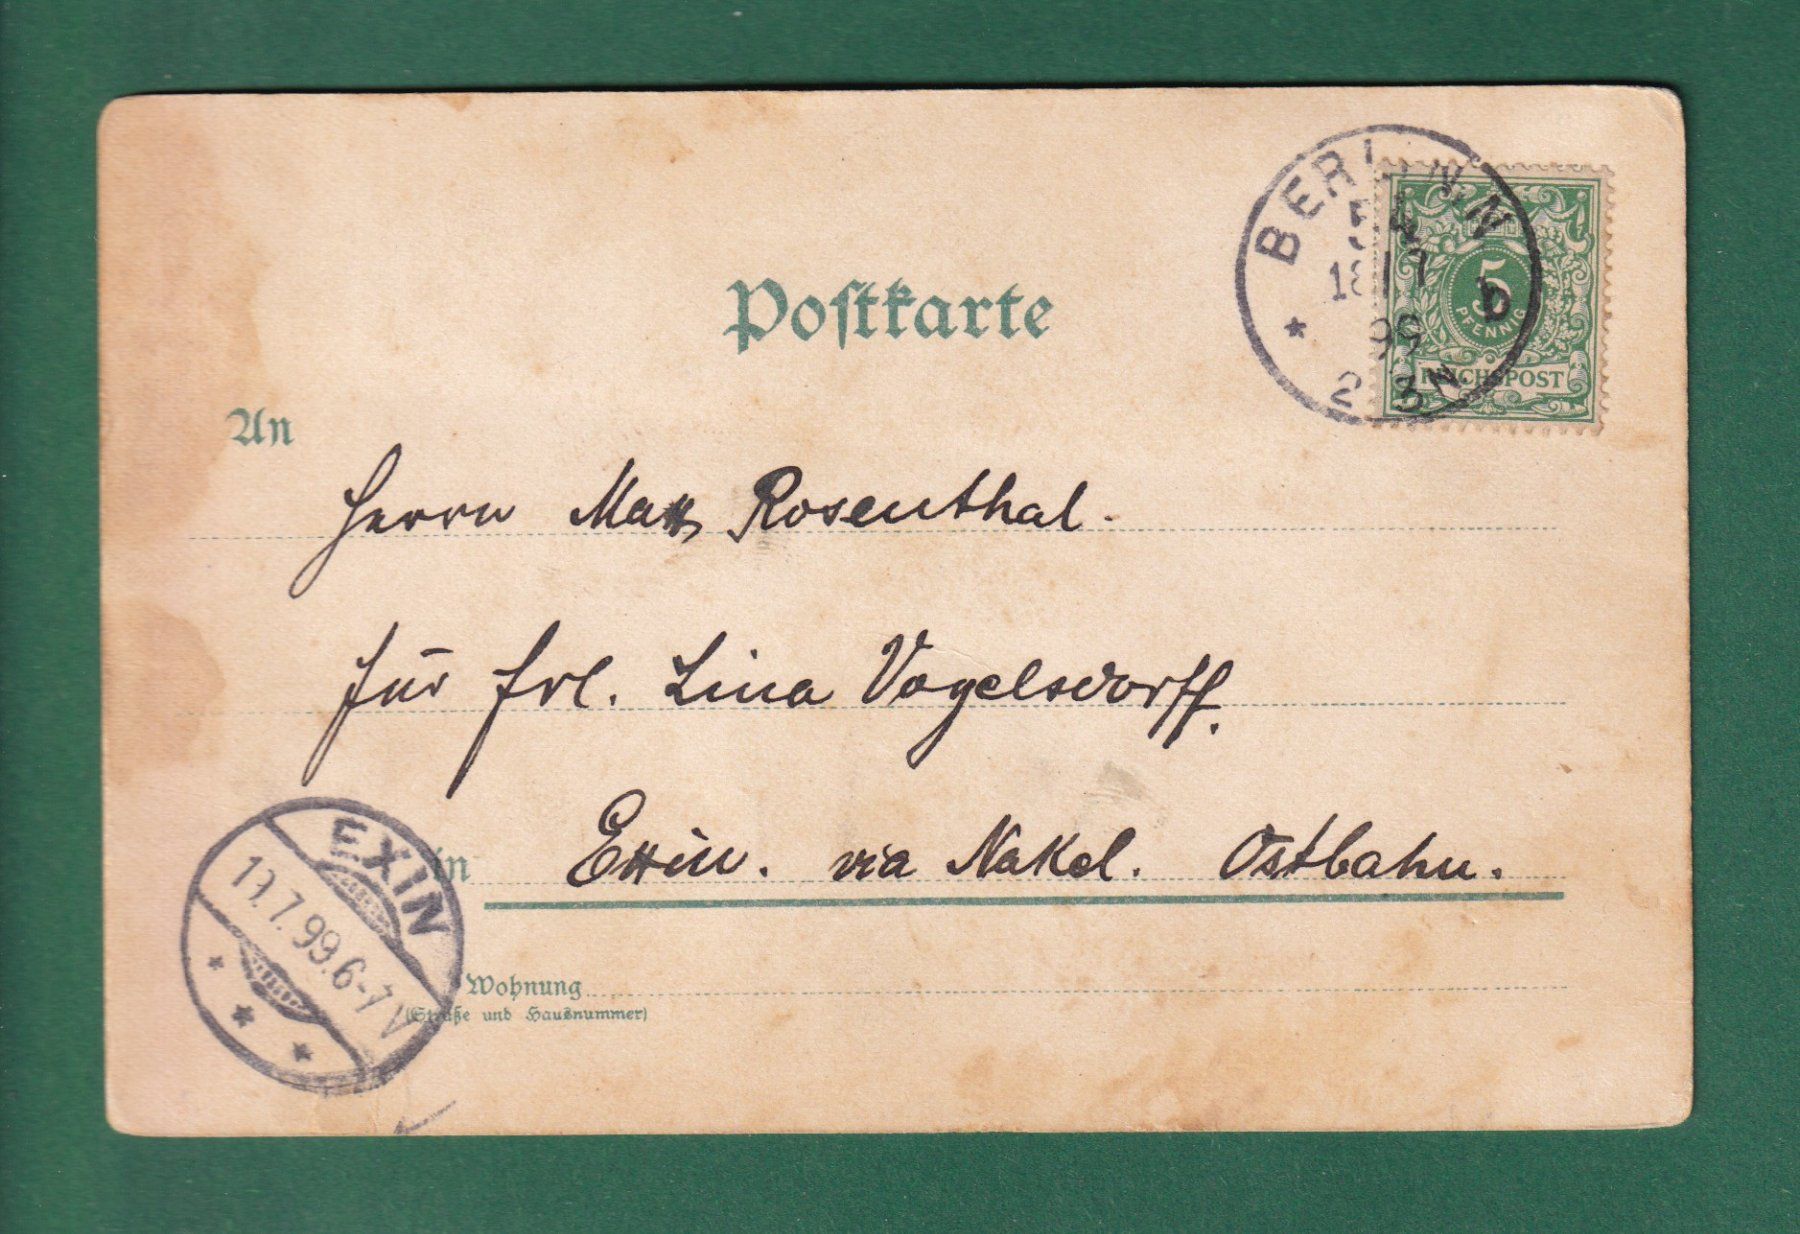 Postkarte
BERLIN N
54
18 7
99
2 3 N
b
5
PFENNIG
REICHSPOST
An
Herrn Max Rosenthal.
für Frl. Lina Vogelsdorff.
in Exin. via Nakel. Ostbahn.
EXIN
19.7.99.6-7V
Wohnung
(Straße und Hausnummer)